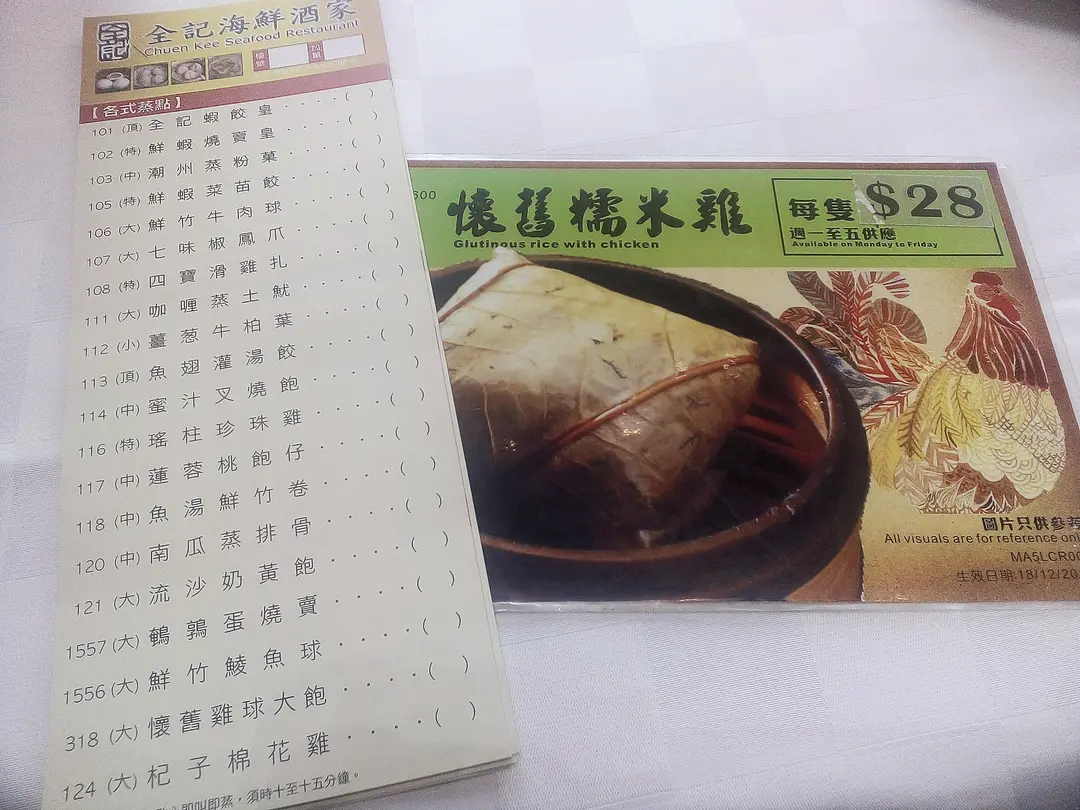 全記
全記海鮮酒家
Chuen Kee Seafood Restaurant
【各式蒸點】
101 (頂) 全記蝦餃皇 ····( )
102 (特) 鮮蝦燒賣皇 ····( )
103 (中) 潮州蒸粉菓 ····( )
105 (特) 鮮蝦菜苗餃 ····( )
106 (大) 鮮竹牛肉球 ····( )
107 (大) 七味椒鳳爪 ····( )
108 (特) 四寶滑雞扎 ····( )
111 (大) 咖喱蒸土魷 ····( )
112 (小) 薑葱牛柏葉 ····( )
113 (頂) 魚翅灌湯餃 ····( )
114 (中) 蜜汁叉燒飽 ····( )
116 (特) 瑤柱珍珠雞 ····( )
117 (中) 蓮蓉桃飽仔 ····( )
118 (中) 魚湯鮮竹卷 ····( )
120 (中) 南瓜蒸排骨 ····( )
121 (大) 流沙奶黃飽 ····( )
1557 (大) 鵪鶉蛋燒賣 ····( )
1556 (大) 鮮竹鯪魚球 ····( )
318 (大) 懷舊雞球大飽 ····( )
124 (大) 杞子棉花雞 ···( )
即叫即蒸，須時十至十五分鐘。
600
懷舊糯米雞
Glutinous rice with chicken
每隻 $28
週一至五供應
Available on Monday to Friday
圖片只供參考
All visuals are for reference onl
MA5LCR00
生效日期:18/12/20